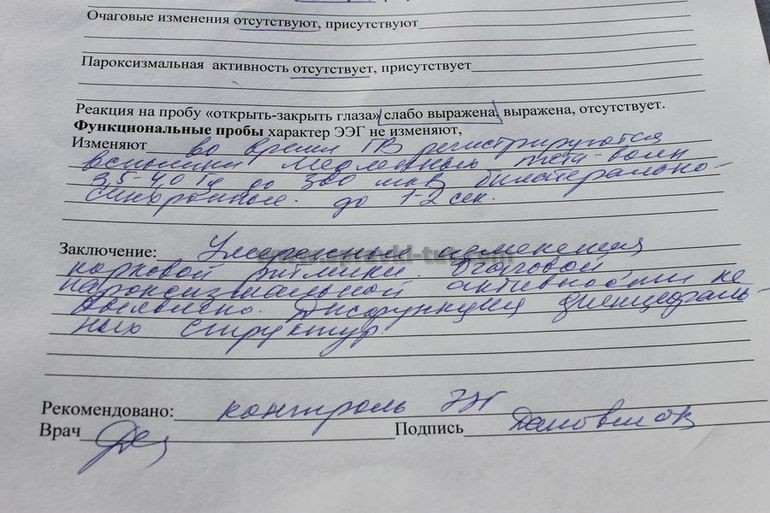 Очаговые изменения отсутствуют, присутствуют
Пароксизмальная активность отсутствует, присутствует
Реакция на пробу «открыть-закрыть глаза» слабо выражена, выражена, отсутствует.
Функциональные пробы характер ЭЭГ не изменяют,
Изменяют во время ГВ регистрируются
вспышки медленных тета-волн
3,5-4,0 Гц до 300 мкВ билатерально-
синхронные. до 1-2 сек.
Заключение: Умеренные изменения
корковой ритмики. Очаговой
пароксизмальной активности не
выявлено. Дисфункция диэнцефаль-
ных структур.
Рекомендовано: контроль ЭЭГ
Врач Подпись